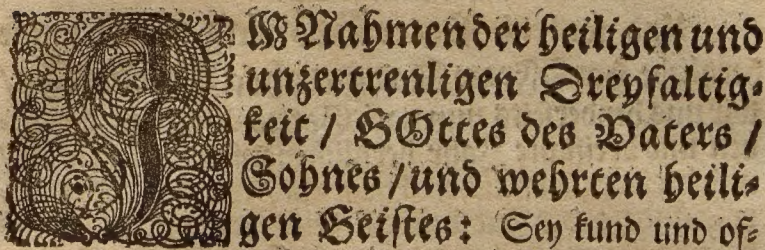 IM Nahmen der heiligen und
unzertrenligen Dreyfaltig⸗
keit / GOttes des Vaters /
Sohnes / und wehrten heili⸗
gen Geistes: Sey kund und of⸗